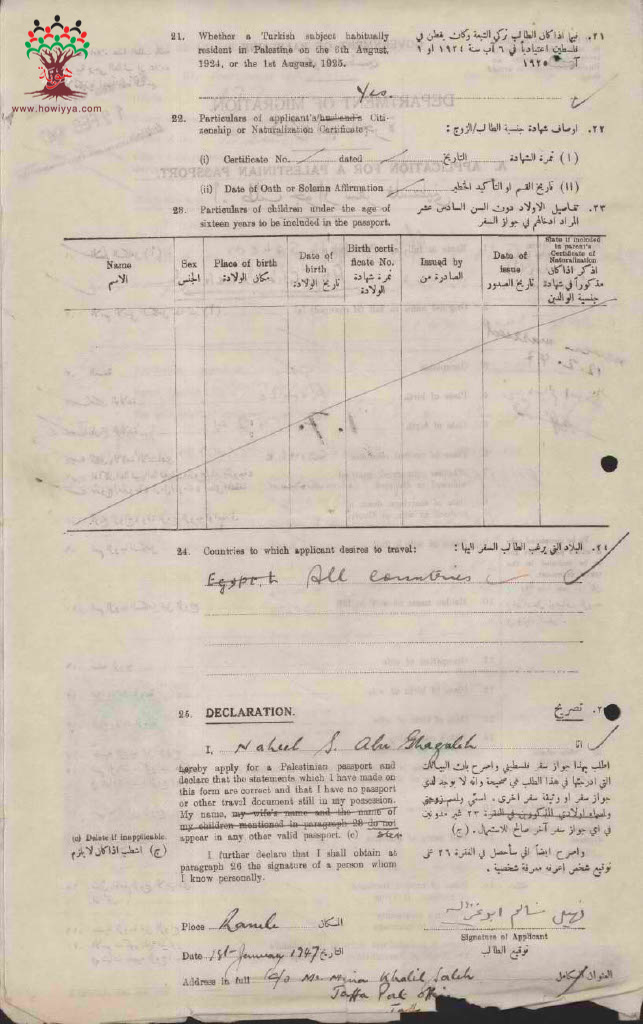 www.howiyya.com
21. Whether a Turkish subject habitually
resident in Palestine on the 6th August,
1924, or the 1st August, 1925.
٢١. فيما اذا كان الطالب تركي التبعة وكان يقطن في
فلسطين اعتيادياً في ٦ آب سنة ١٩٢٤ او ١
آب ١٩٢٥
Yes
22. Particulars of applicant's/husband's Citi-
zenship or Naturalization Certificate:
٢٢. اوصاف شهادة جنسية الطالب/الزوج:
(i) Certificate No. dated
التاريخ (١) نمرة الشهادة
(ii) Date of Oath or Solemn Affirmation
(١١) تاريخ القسم او التأكيد الخطير
23. Particulars of children under the age of
sixteen years to be included in the passport.
٢٣. تفاصيل الاولاد دون السن السادس عشر
المراد ادخالهم في جواز السفر
Name
الاسم
Sex
الجنس
Place of birth
مكان الولادة
Date of
birth
تاريخ الولادة
Birth certi-
ficate No.
نمرة شهادة
الولادة
Issued by
الصادرة من
Date of
issue
تاريخ الصدور
State if included
in parent's
Certificate of
Naturalization
اذكر اذا كان
مذكوراً في شهادة
جنسية الوالدين
24. Countries to which applicant desires to travel:
٢٤. البلاد التي يرغب الطالب السفر اليها:
Egypt All countries
25. DECLARATION.
تصريح
I, Naheel S. Abu Ghazaleh
انا
hereby apply for a Palestinian passport and
declare that the statements which I have made on
this form are correct and that I have no passport
or other travel document still in my possession.
My name, my wife's name and the name of
my children mentioned in paragraph 23 do not
appear in any other valid passport. (c)
I further declare that I shall obtain at
paragraph 26 the signature of a person whom
I know personally.
اطلب بهذا جواز سفر فلسطيني واصرح بان البيانات
التي ادرجتها في هذا الطلب هي صحيحة وانه لا يوجد لدي
جواز سفر او وثيقة سفر اخرى. اسمي واسم زوجتي
واسماء اولادي المذكورين في الفقرة ٢٣ غير مدونين
في اي جواز سفر آخر صالح للاستعمال. (ج)
واصرح ايضاً اني سأحصل في الفقرة ٢٦ على
توقيع شخص اعرفه معرفة شخصية.
(c) Delete if inapplicable.
(ج) اشطب اذا كان لا يلزم
نهيل سالم ابو غزاله
Signature of Applicant
توقيع الطالب
Place Ramle المكان
Date 1st January 1947 التاريخ
Address in full c/o Mr. Khalil Saleh العنوان الكامل
Jaffa Port